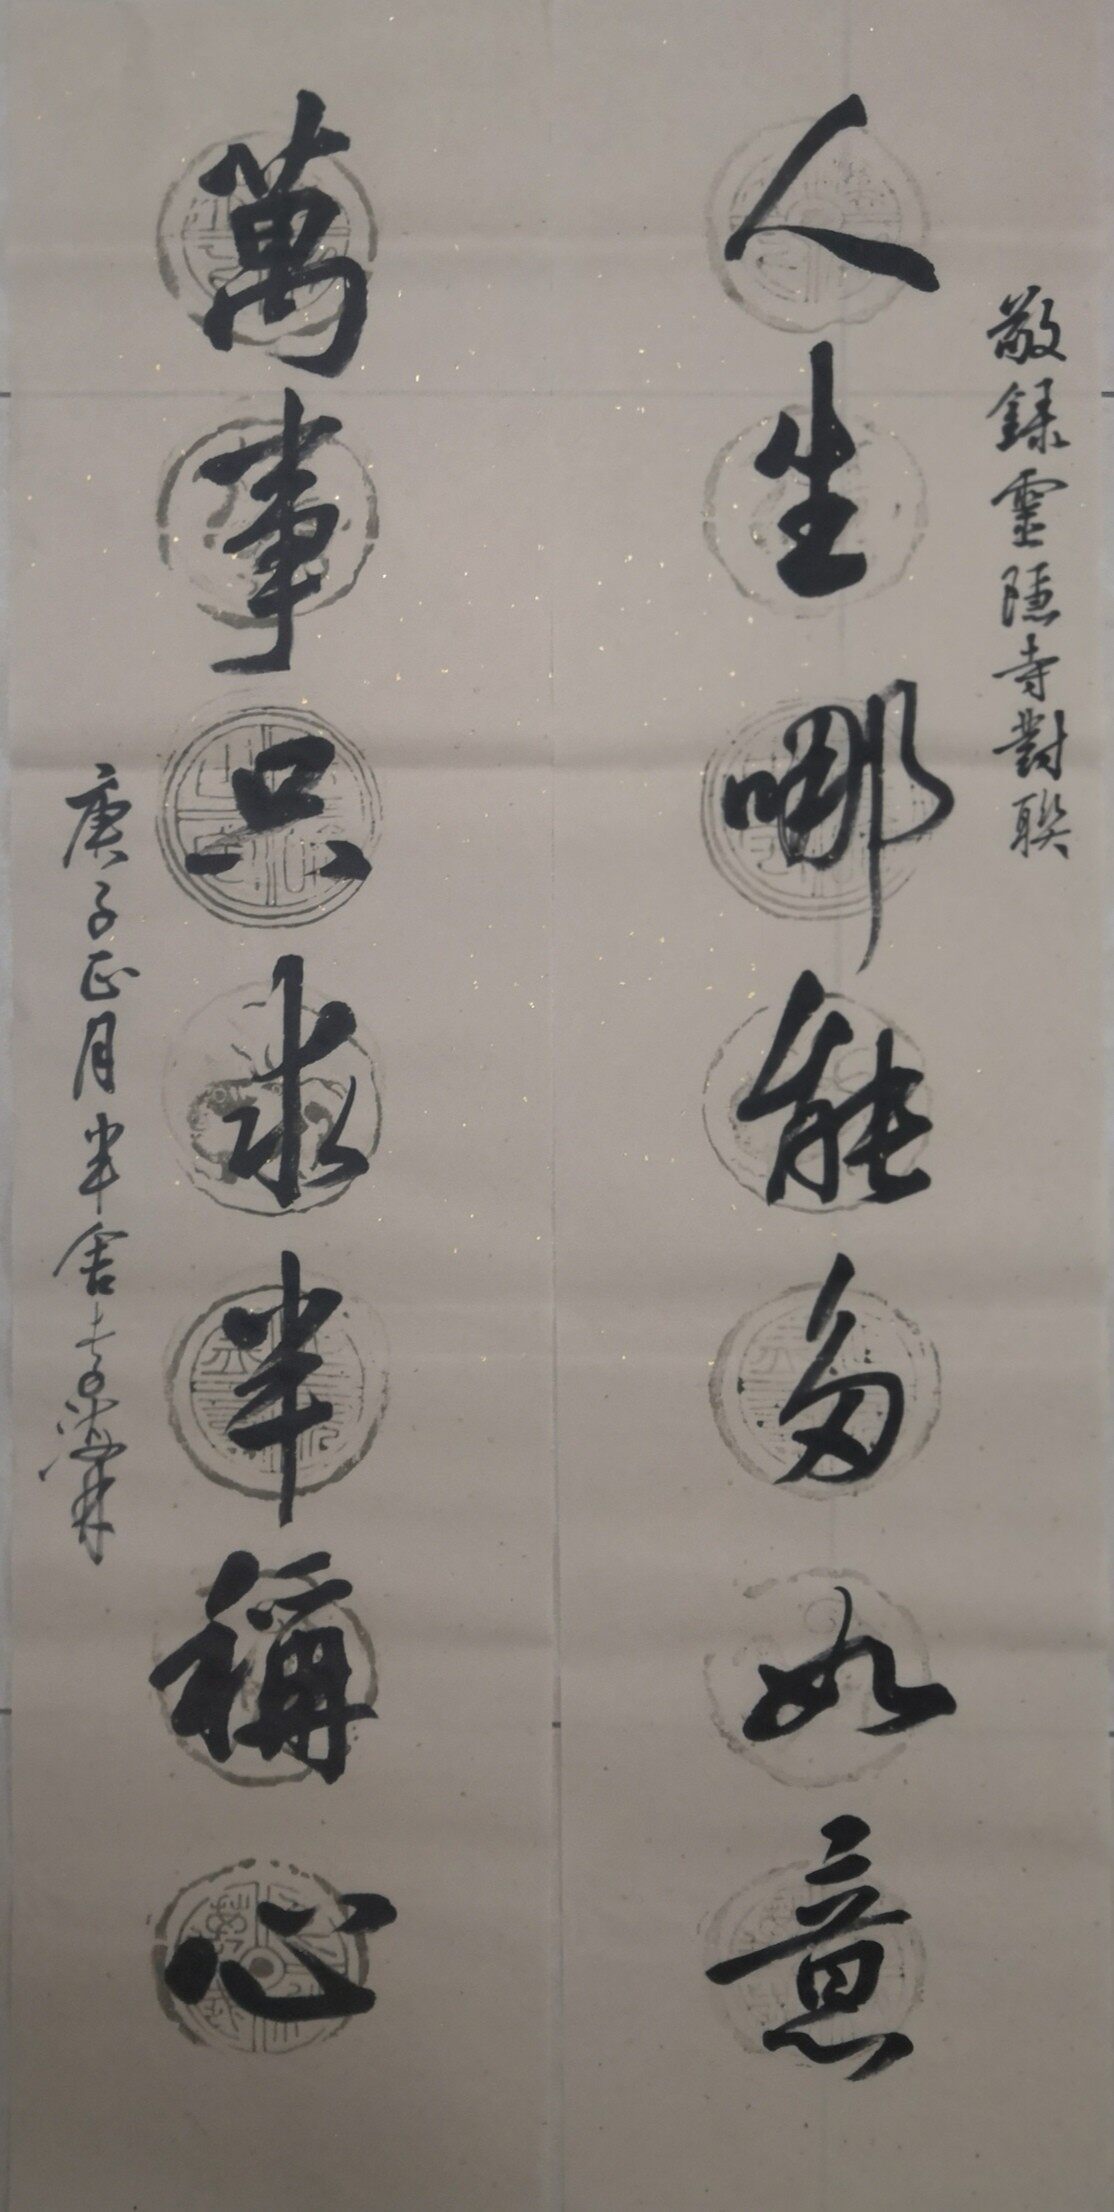 敬録靈隱寺對聯
人生哪能多如意
萬事只求半稱心
庚子正月半舍主人